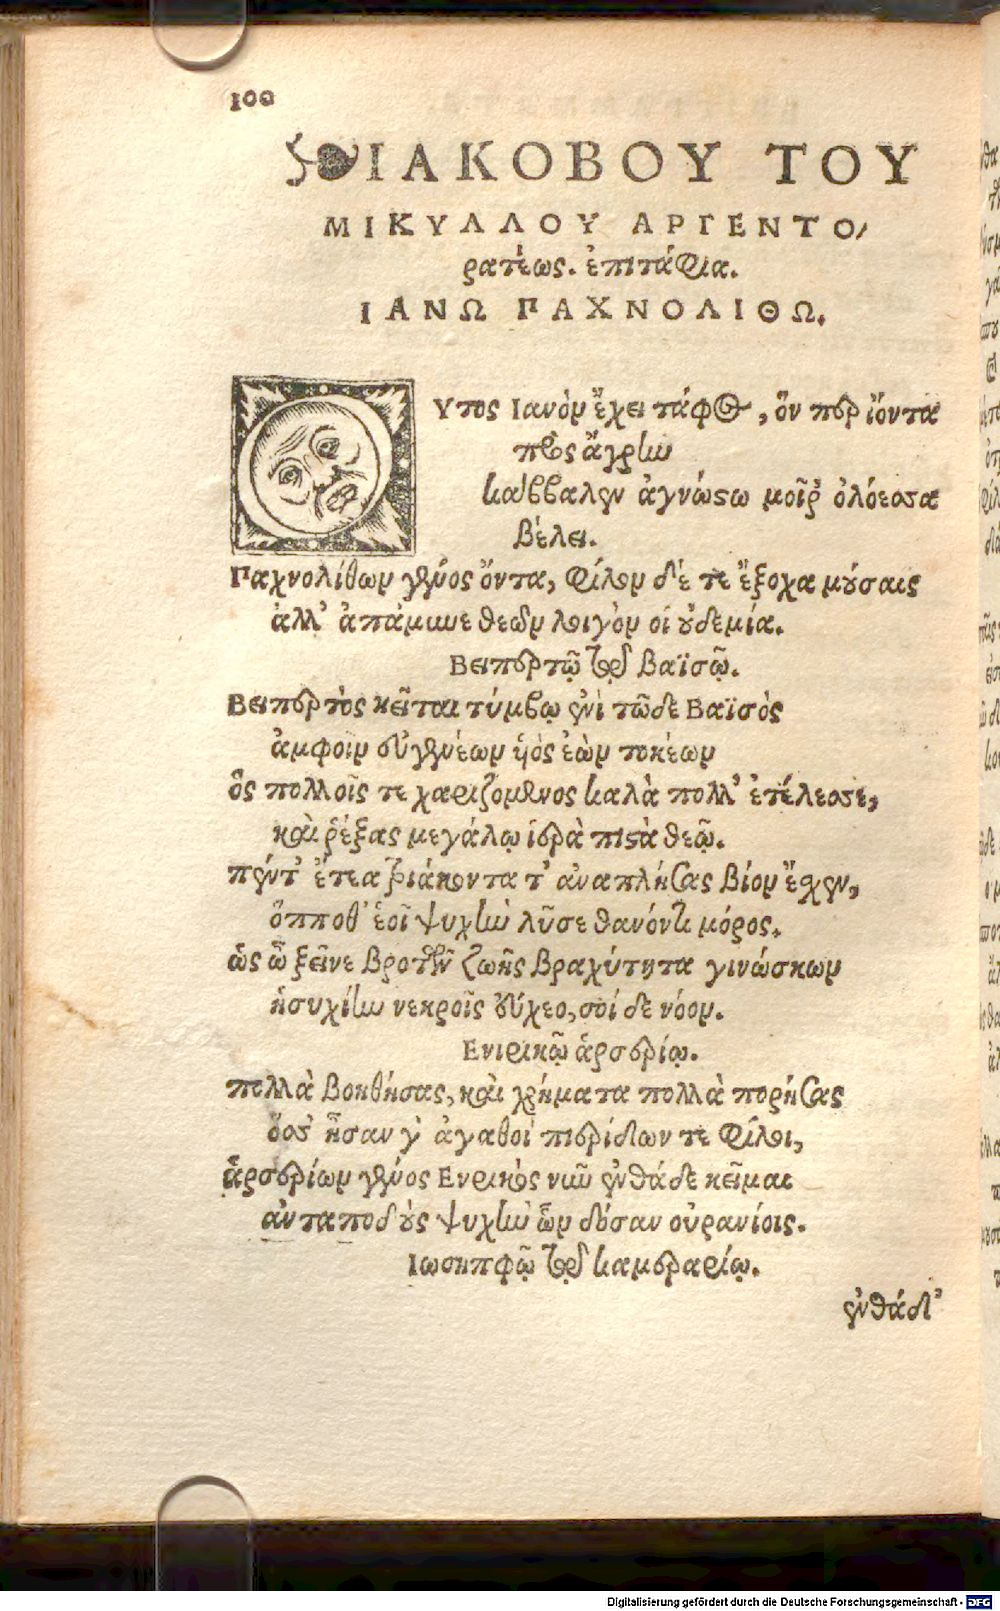 100
ΙΑΚΟΒΟΥ ΤΟΥ
ΜΙΚΥΛΛΟΥ ΑΡΓΕΝΤΟ/
ρατέως. ἐπιτάφια.
ΙΑΝΩ ΠΑΧΝΟΛΙΘΩ.
Οὗτος Ιανὸν ἔχει τάφος, ὃν περ ἰόντα
πρὸς ἄγρην
καββαλεν ἀγνώςῳ μοῖρ᾽ ὀλόεσσα
βέλει.
Παχνολίθων γένος ὄντα, φίλον δέ τε ἔξοχα μούσαις
ἀλλ᾽ ἀπάμυνε θεῶν λοιγὸν οἱ οὐδεμία.
Βειπερτῷ τῷ Βαϊσῷ.
Βειπερτὸς κεῖται τύμβῳ ἐνὶ τῶδε Βαϊσὸς
ἀμφοῖν συγγενέων ἠὸς ἐὼν τοκέων
ὃς πολλοῖς τε χαριζόμενος καλὰ πολλ᾽ ἐτέλεσσε,
καὶ ῥέξας μεγάλῳ ἱερὰ πιςὰ θεῷ.
πέντ᾽ ἔτεα τριάκοντα τ᾽ ἀναπλήσας βίον ἔχεν,
ὁπποθ᾽ ἑοῖ ψυχὴν λῦσε θανόντι μόρος.
ὡς ὦ ξεῖνε βροτῶν ζωῆς βραχύτητα γινώσκων
ἡσυχίην νεκροῖς εὔχεο, σοί δε νόον.
Ενιρικῷ ἁρσερίῳ.
πολλὰ βοηθήσας, καὶ χρήματα πολλὰ πορήσας
ὅσσ᾽ ἦσαν γ᾽ ἀγαθοί πιερίδων τε φίλοι,
ἁρσερίων γένος Ενρικὸς νῦν ἐνθάδε κεῖμαι
ἀνταποδοὺς ψυχὴν ὧν δόσαν οὐρανίοις.
Ιωσηπφῷ τῷ καμεραρίῳ.
ἐνθάδ᾽
Digitalisierung gefördert durch die Deutsche Forschungsgemeinschaft - DFG